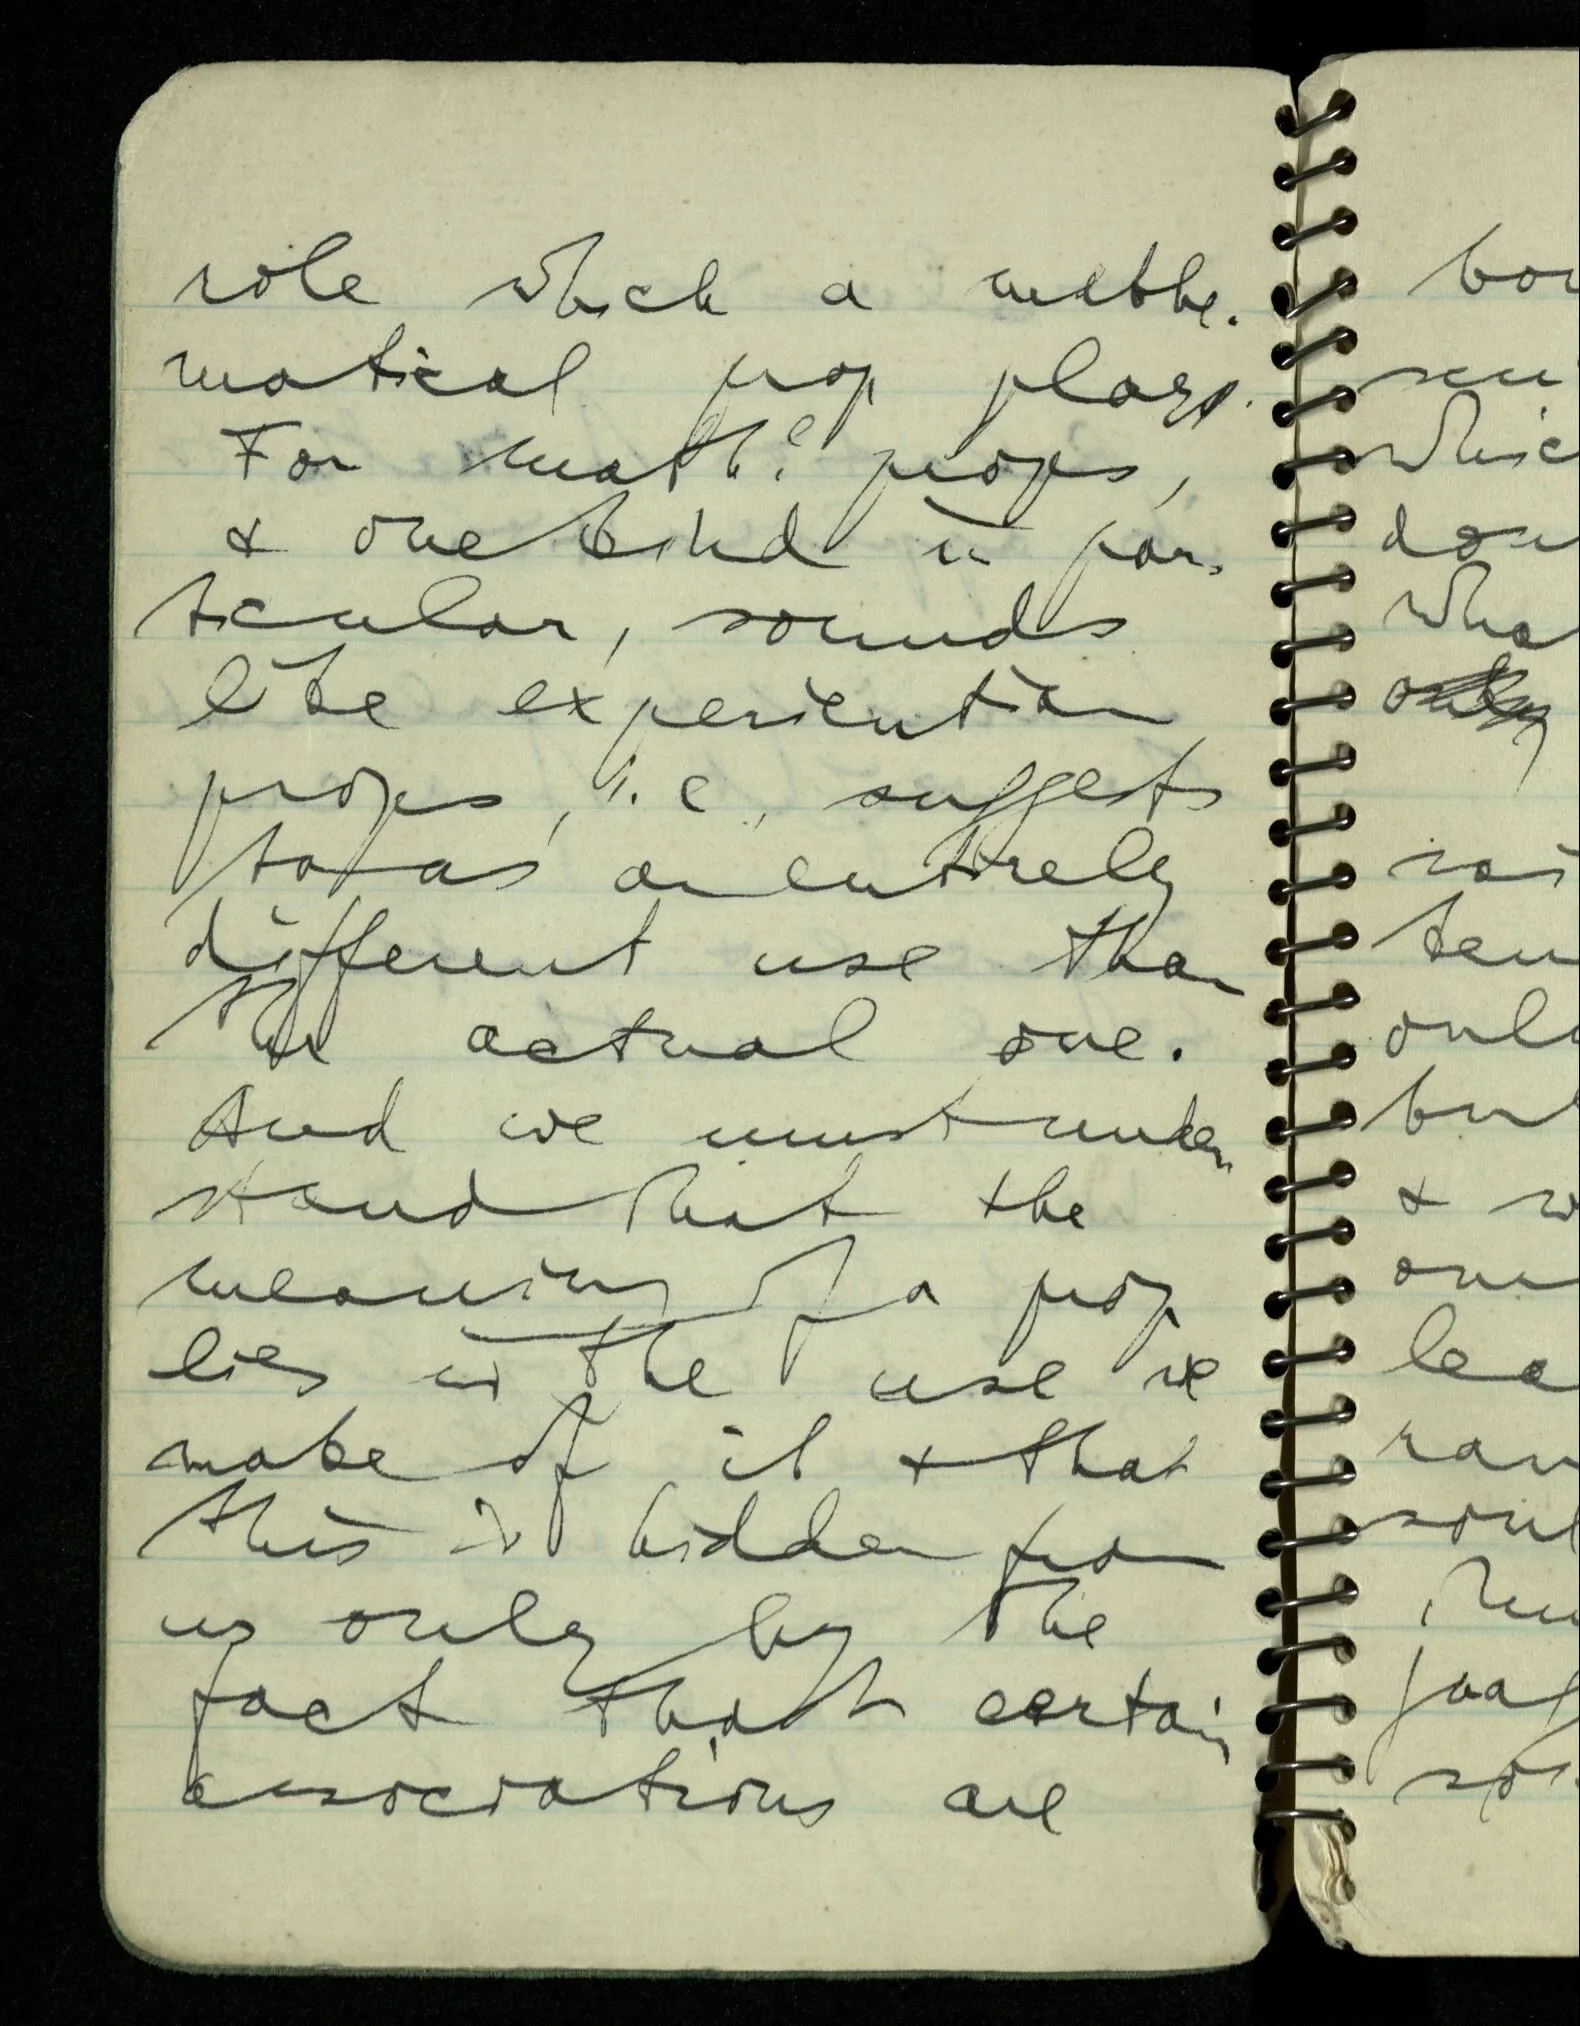 role which a mathe.
matical prop plays.
For math.c props,
& one kind in par-
ticular, sounds
like experiential
props, i.e., suggests
to us an entirely
different use than
the actual one.
And we must under
stand that the
meaning of a prop
lies in the use we
make of it & that
this is hidden from
us only by the
fact that certain
associations are
whic
only